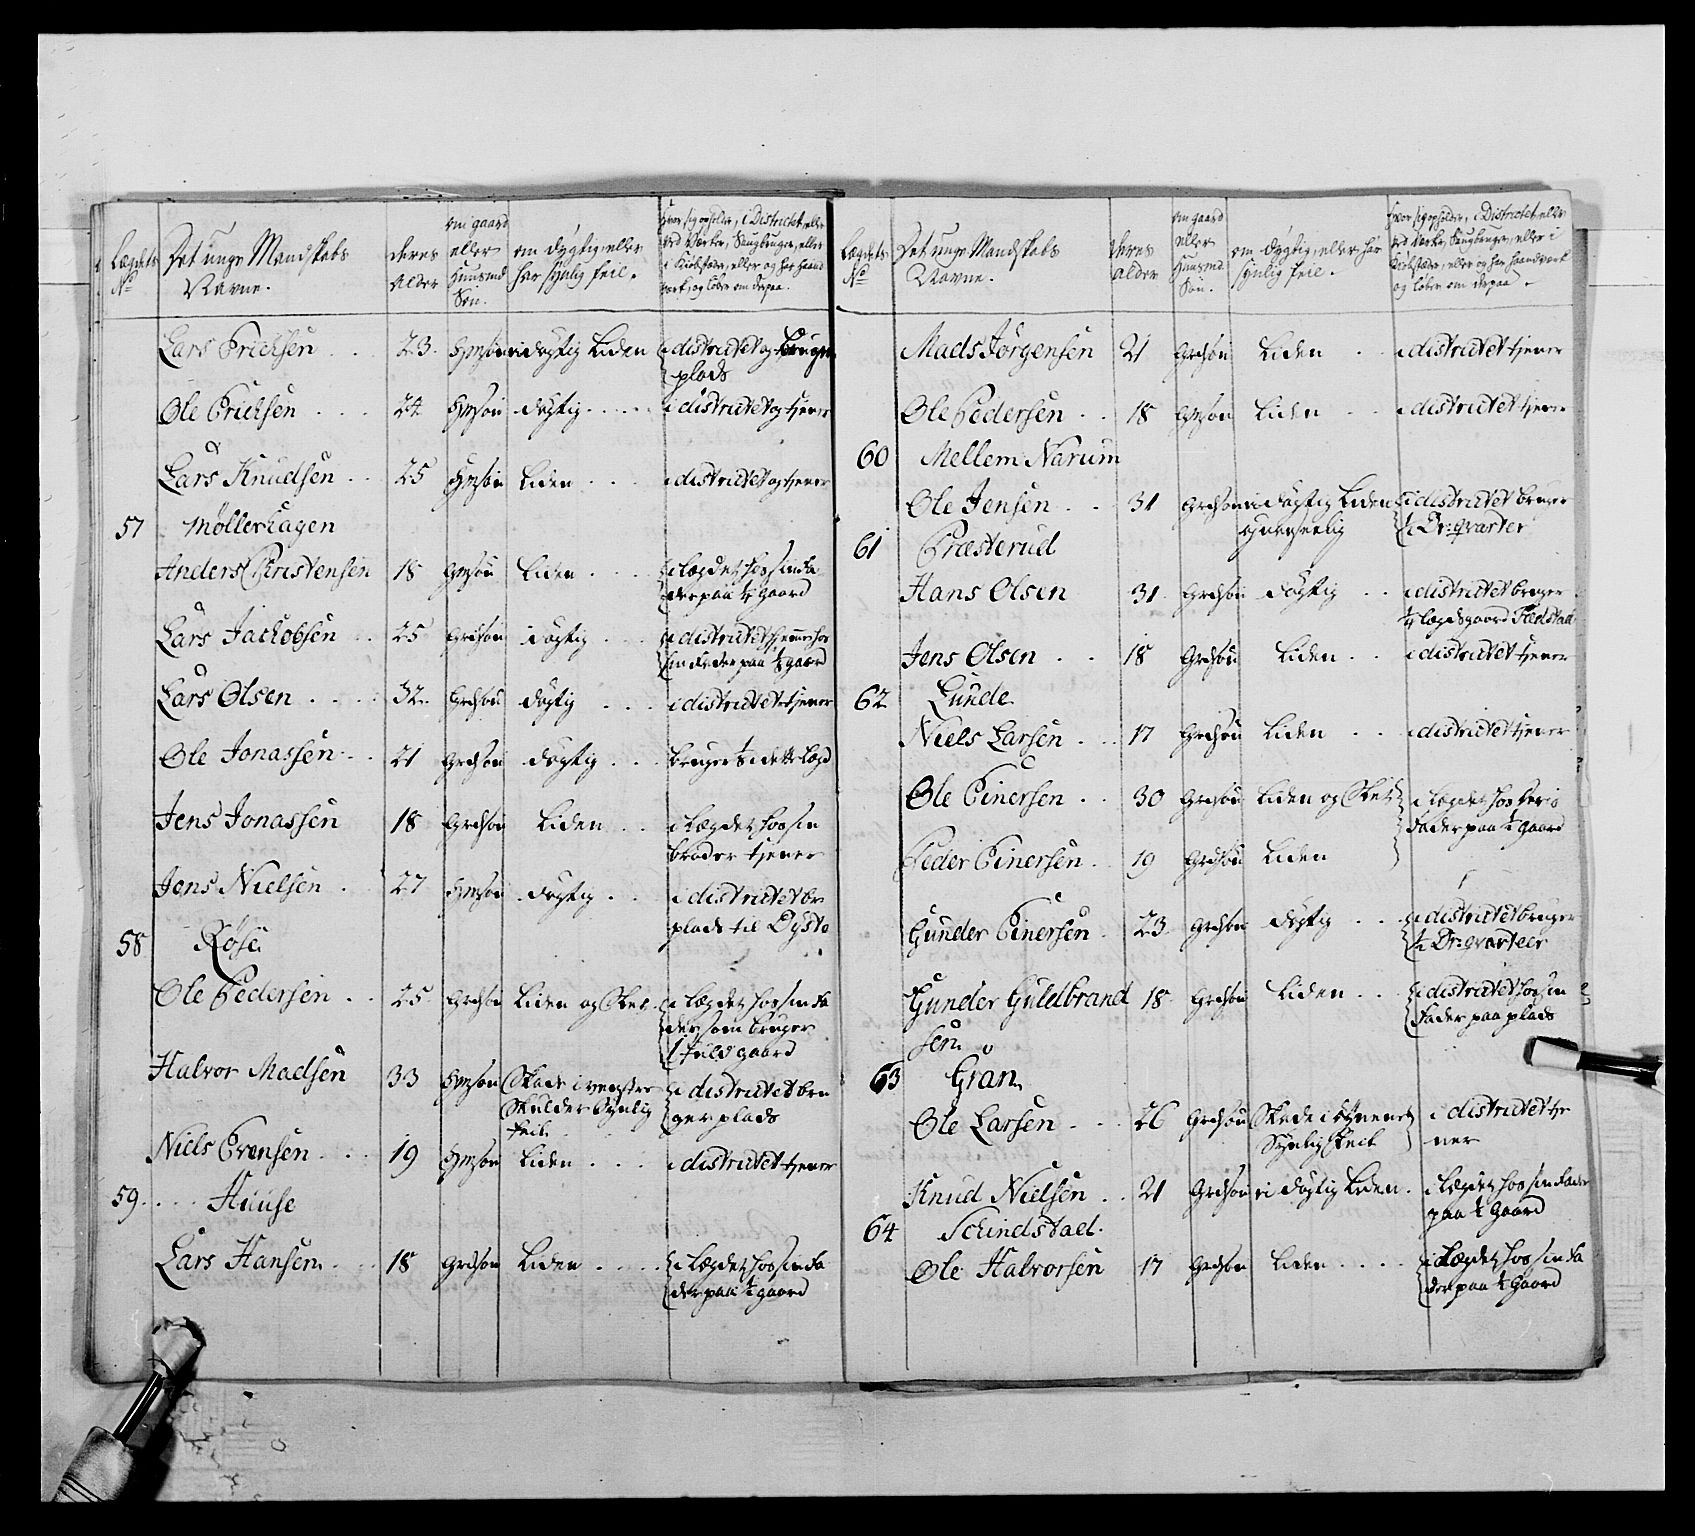 Lægdets No
Det unge Mandskabs Navne.
deres Alder
om gaard eller Huusmd Søn.
om dygtig, eller har synlig feil.
Hvor sig opholder, i Districtet, eller ved Værker, Saugbruger, eller i Kiøbstæder, eller og har haandværk, og løber om derpaa.
Lars Erichsen . . 23. Hmsøn udygtig Liden i districtet og bruger
plads
Ole Erichsen . . . 24 Hmsøn dygtig . . . . . i districtet og tjener
Lars Knudsen . . 25 Hmsøn Liden . . . . i districtet og tjener
57 Møllerhagen
Anders Christensen 18 Grdsøn Liden . . . . i Lægdet hos sin fa
der paa 1/2 Gaard
Lars Jackobsen . . 25 Grdsøn dygtig . . . i districtet hos
sin fader paa 1/2 gaard
Lars Olsen . . . . 32. Grdsøn dygtig . . . i districtet tjener
Ole Jonassen . . 21 Grdsøn dygtig . . . bruger i dette Lægd
Jens Jonassen 18 Grdsøn Liden . . i Lægdet hos sin
broder tjener
Jens Nielsen . 27 Hmsøn dygtig . . i districtet br
plads til Dysto
58 Røise
Ole Pedersen . . 25 Grdsøn Liden og Skel. i Lægdet hos sin fa
der som bruger
1 fuld gaard
Halvor Madsen 33 Hmsøn Skade i venstre i districtet bru
Skulder Synlig ger plads
feil
Niels Evensen . . . 19 Hmsøn Liden . . . . i districtet tjener
59. . . . Huuse
Lars Hansen . . . 18 Grdsøn Liden . . . . . i Lægdet hos sin fa
der paa 1/2 gaard
Lægdets No
Det unge Mandskabs Navne.
deres Alder
om gaard eller Huusmd Søn.
om dygtig, eller har synlig feil.
Hvor sig opholder, i Districtet, eller ved Værker, Saugbruger, eller i Kiøbstæder, eller og har haandværk og løber om derpaa.
Mads Jørgensen 21 Grdsøn Liden . . i districtet tjener
Ole Pedersen . . 18 Grdsøn Liden . . i districtet tjener
60 Mellem Narum
Ole Jensen . . 31 Grdsøn udygtig Liden i districtet bruger
1/2 Dr: qvarter
61 Præsterud
Hans Olsen 31 Grdsøn dygtig . . i districtet bruger
1/4 lægdsgaard
Jens Olsen . . 18 Grdsøn Liden . . i districtet tjener
62 Lunde
Niels Larsen . . . 17 Grdsøn Liden . . . i districtet tjener
Ole Einersen . . 30 Grdsøn Liden og Skel i Lægdet hos
fader paa 1/2 gaard
Peder Einersen . 19 Grdsøn Liden
Gunder Einersen . 23 Grdsøn dygtig . . i districtet bruger
1/2 Dr: qvarteer
Gunder Guldbrand 18 Grdsøn Liden . . i districtet hos sin
sen fader paa plads
63 Gran
Ole Larsen . . . 26 Grdsøn Skade i Øynene i districtet tje
Synlig feil ner
Knud Nielsen . . 21 Grdsøn udygtig Liden . i Lægdet hos sin fader
paa 1/2 Gaard
64 Schindstad.
Ole Halvorsen 17 Grdsøn Liden . . . . i Lægdet hos sin fa
der paa 1/2 Gaard